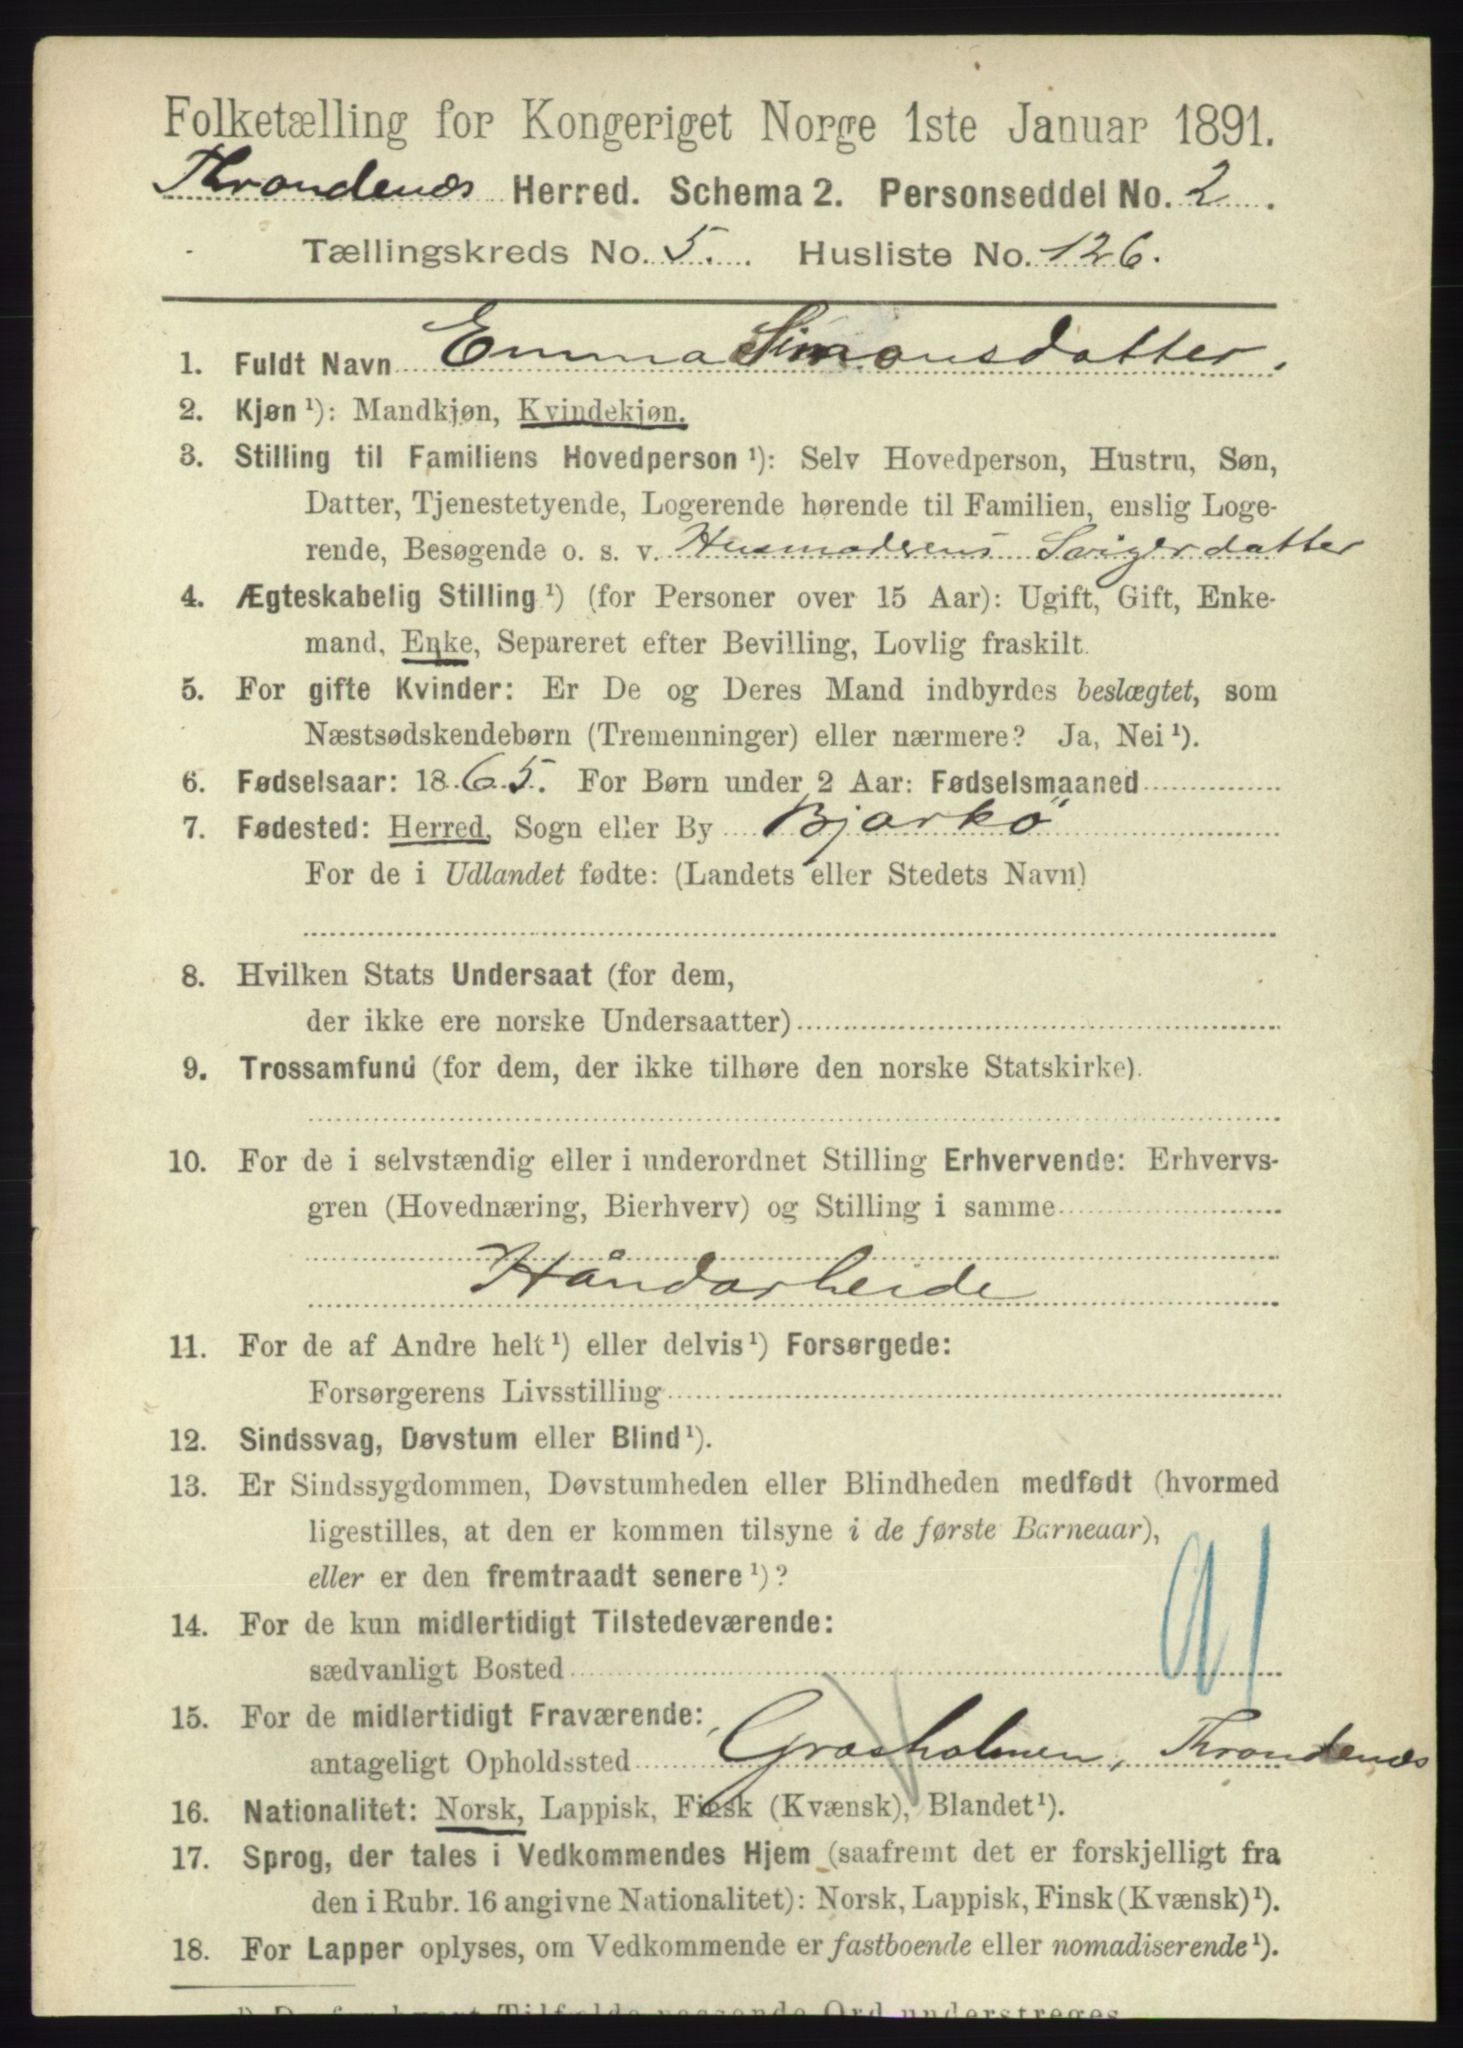 Folketælling for Kongeriget Norge 1ste Januar 1891.
Throndenæs Herred. Schema 2. Personseddel No. 2.
Tællingskreds No. 5. Husliste No. 126.
1. Fuldt Navn Emma Simonsdatter.
2. Kjøn ¹): Mandkjøn, Kvindekjøn.
3. Stilling til Familiens Hovedperson ¹): Selv Hovedperson, Hustru, Søn,
Datter, Tjenestetyende, Logerende hørende til Familien, enslig Loge-
rende, Besøgende o. s. v. Husmoderens Svigerdatter
4. Ægteskabelig Stilling ¹) (for Personer over 15 Aar): Ugift, Gift, Enke-
mand, Enke, Separeret efter Bevilling, Lovlig fraskilt.
5. For gifte Kvinder: Er De og Deres Mand indbyrdes beslægtet, som
Næstsødskendebørn (Tremenninger) eller nærmere? Ja, Nei ¹).
6. Fødselsaar: 1865. For Børn under 2 Aar: Fødselsmaaned
7. Fødested: Herred, Sogn eller By Bjarkö
For de i Udlandet fødte: (Landets eller Stedets Navn)
8. Hvilken Stats Undersaat (for dem,
der ikke ere norske Undersaatter)
9. Trossamfund (for dem, der ikke tilhøre den norske Statskirke).
10. For de i selvstændig eller i underordnet Stilling Erhvervende: Erhvervs-
gren (Hovednæring, Bierhverv) og Stilling i samme
Håndarbeide
11. For de af Andre helt ¹) eller delvis ¹) Forsørgede:
Forsørgerens Livsstilling
12. Sindssvag, Døvstum eller Blind ¹).
13. Er Sindssygdommen, Døvstumheden eller Blindheden medfødt (hvormed
ligestilles, at den er kommen tilsyne i de første Barneaar),
eller er den fremtraadt senere ¹)?
14. For de kun midlertidigt Tilstedeværende:
sædvanligt Bosted
15. For de midlertidigt Fraværende:
antageligt Opholdssted Grasholmen, Throndenæs
16. Nationalitet: Norsk, Lappisk, Finsk (Kvænsk), Blandet ¹).
17. Sprog, der tales i Vedkommendes Hjem (saafremt det er forskjelligt fra
den i Rubr. 16 angivne Nationalitet): Norsk, Lappisk, Finsk (Kvænsk) ¹).
18. For Lapper oplyses, om Vedkommende er fastboende eller nomadiserende ¹).
¹) De for hvert Tilfælde passende Ord understreges.